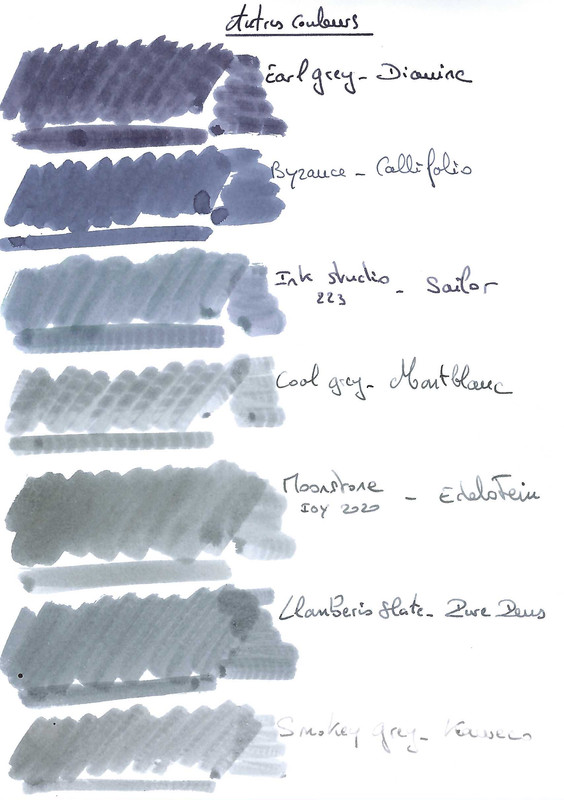 Autres couleurs
Earl grey - Diamine
Byzance - Callifolio
Ink studio - Sailor
223
Cool grey - Montblanc
Moonstone - Edelstein
IOY 2020
Llanberis Slate - Pure Pens
Smokey grey - Kaweco